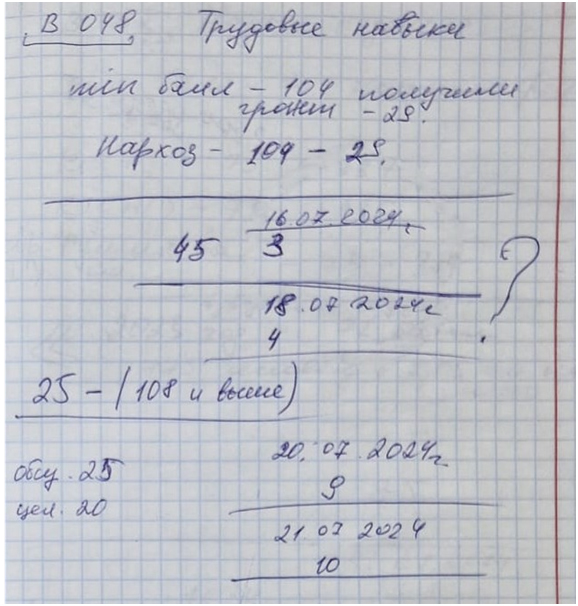 В 048. Трудовые навыки
min балл - 104 получили
грант - 29.
Нархоз - 104 - 29.
16.07.2024г.
45 3
18.07.2024г
4
?
25 - (108 и выше)
20.07.2024г.
общ. 25
9
цел. 20
21 07 2024
10